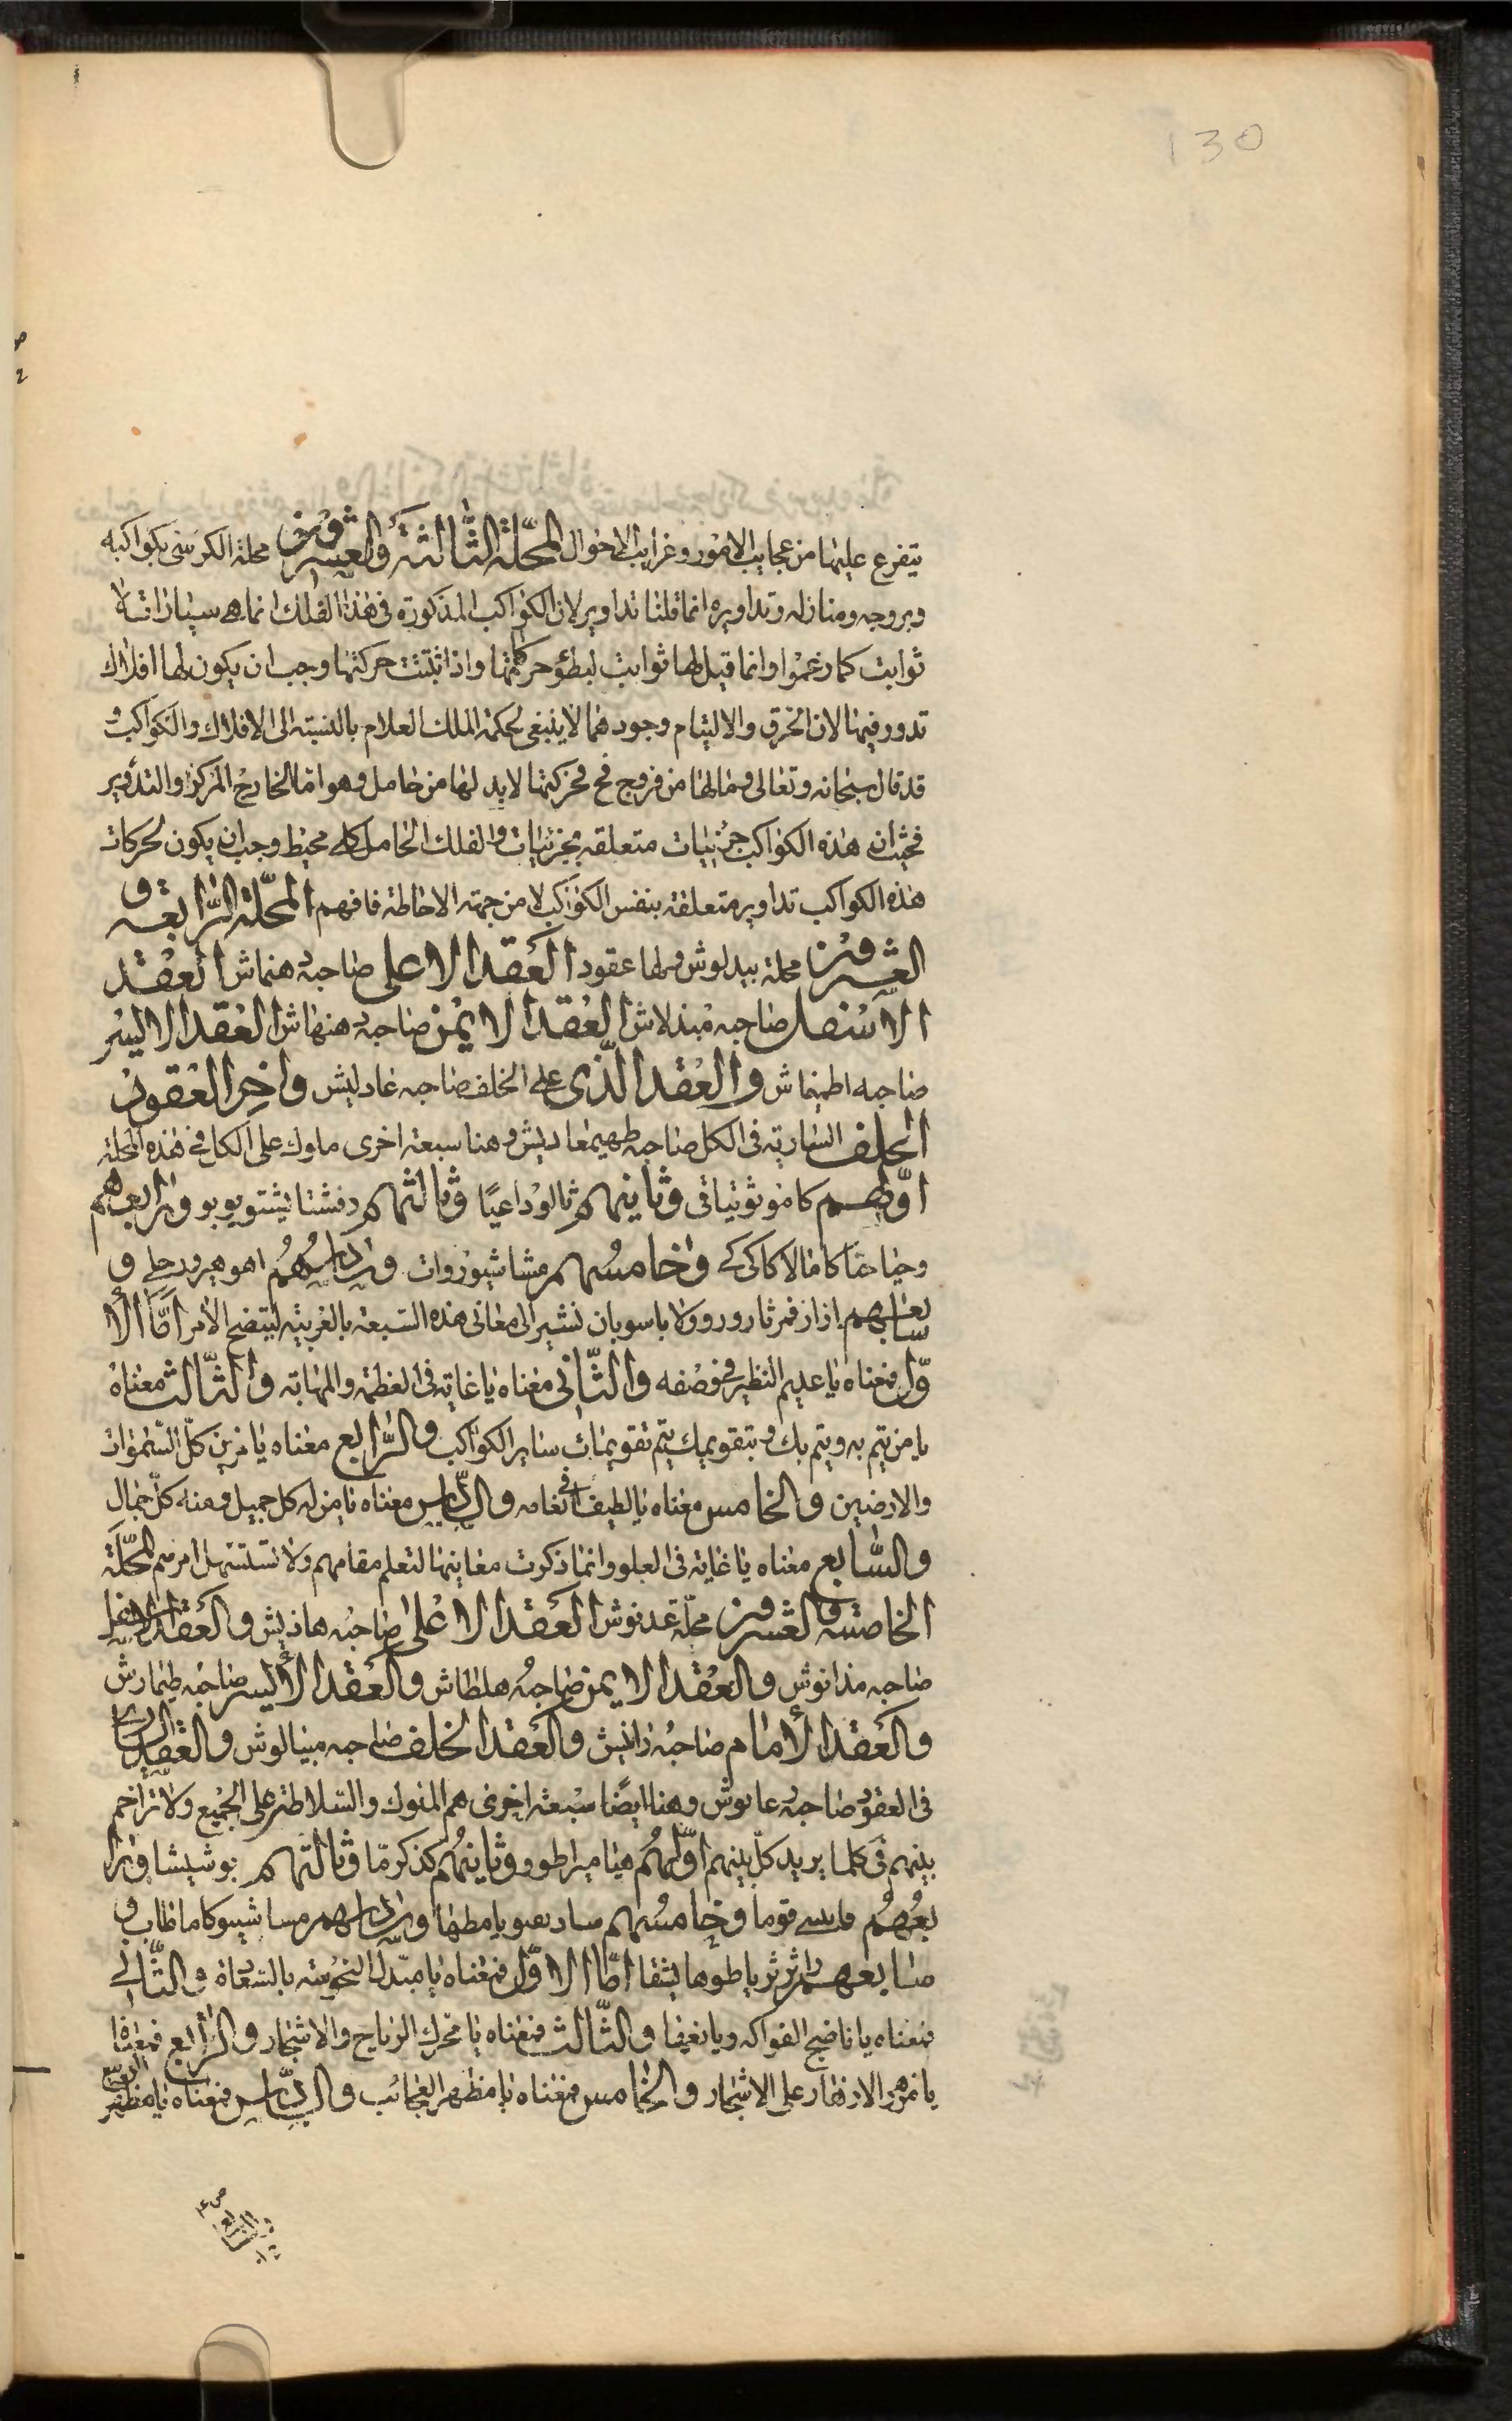 130
يتفرع عليها من عجايب الامور وغرايب الاحوال المحلة الثالثة والعشرون محلة الكرسي بكواكبه
وبروجه ومنازله وتداويره انما قلنا تداوير لان الكواكب المذكورة في هذا الفلك انما هي سيارات لا
ثوابت كما زعموا وانما قيل لها ثوابت لبطؤ حركاتها واذا ثبتت حركتها وجب ان يكون لها افلاك
تدور فيها لان الخرق والالتيام وجودهما لا ينبغي لحكمة الملك العلام بالنسبة الى الافلاك والكواكب و
قد قال سبحانه وتعالى وما لها من فروج فح فحركتها لا بد لها من حامل وهو اما الخارج المركز او التدوير
فحيث ان هذه الكواكب جزئيات متعلقة بجزئيات والفلك الحامل كلي محيط وجب ان يكون لحركات
هذه الكواكب تداوير متعلقة بنفس الكواكب لا من جهة الاحاطة فافهم المحلة الرابعة و
العشرون محلة بيدلوش ولها عقود العقد الاعلى صاحبه هنماش العقد
الاسفل صاحبه مبندلاش العقد الايمن صاحبه هنهاش العقد الايسر
صاحبه اطهنماش والعقد الذي على الخلف صاحبه غادليش واخر العقود
الخلف السارية في الكل صاحبه طهيمغاديش وهنا سبعة اخرى ملوك على الكل في هذه المحلة
اولهم كاموثوتياقي وثانيهم ثالوداعيا وثالثهم دفشتا يشتويوبو ورابعهم
وحيا حقا كامالا كاكي كي وخامسهم مشاشوروات وسادسهم اهوهيروحلي و
سابعهم ازاز فرثارورو ولا باس وبان نشير الى معاني هذه السبعة بالعربية ليتضح الامر اما الا
ول فمعناه يا عديم النظير في وصفه والثاني معناه يا غاية في العظمة والمهابة والثالث معناه
يا من يتم به ويتم بك وبتقويمك يتم تقويمات ساير الكواكب والرابع معناه يا مزين كل السموات
والارضين والخامس معناه يا لطيف في انعامه والسادس معناه يا من له كل جميل ومنه كل جمال
والسابع معناه يا غاية في العلو وانما ذكرت معانيها لتعلم مقامهم ولا تستسهل امرهم المحلة
الخامسة والعشرون محلة عدنوش العقد الاعلى صاحبه هاذيش والعقد الاسفل
صاحبه مذانوش والعقد الايمن صاحبه هلطاش والعقد الأيسر صاحبه طيمارش
والعقد الأمام صاحبه زانيش والعقد الخلف صاحبه ميالوش والعقد السارية
في العقود صاحبه عانوش وهنا ايضا سبعة اخرى هم الملوك والسلاطنة على الجميع ولا تزاحم
بينهم في كلما يريد كل بينهم اولهم هياميراطور وثانيهم كذكرما وثالثهم بوشيشا ورا
بعهم فوما وخامسهم يا مطها وسادسهم مساشيوكاماظاب و
سابعهم باطوهايثقا اما الاول فمعناه يا مبدل النحوسة بالسعادة والثاني
فمعناه يا ناضج الفواكه ويانعيها والثالث فمعناه يا محرك الرياح والاشجار والرابع فمعناه
يا مزهر الازهار على الاشجار والخامس فمعناه يا مظهر العجائب والسادس فمعناه يا مظهر
الربيع
والسابع